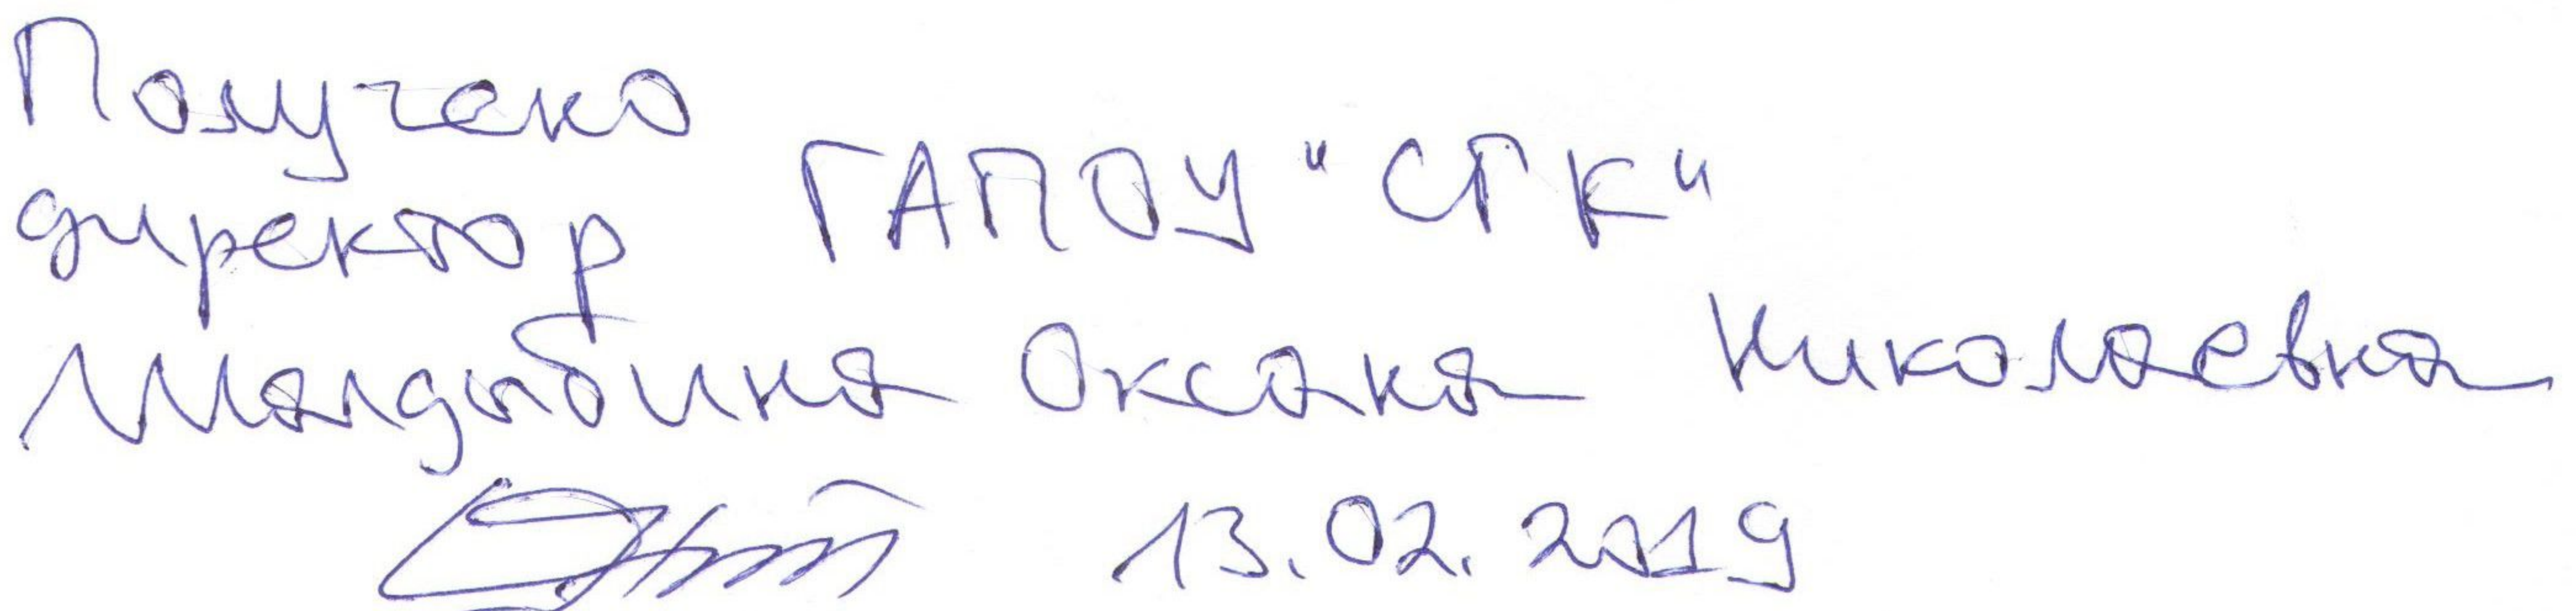 Получено
директор ГАПОУ "СГК"
Шалдыбина Оксана Николаевна
13.02.2019